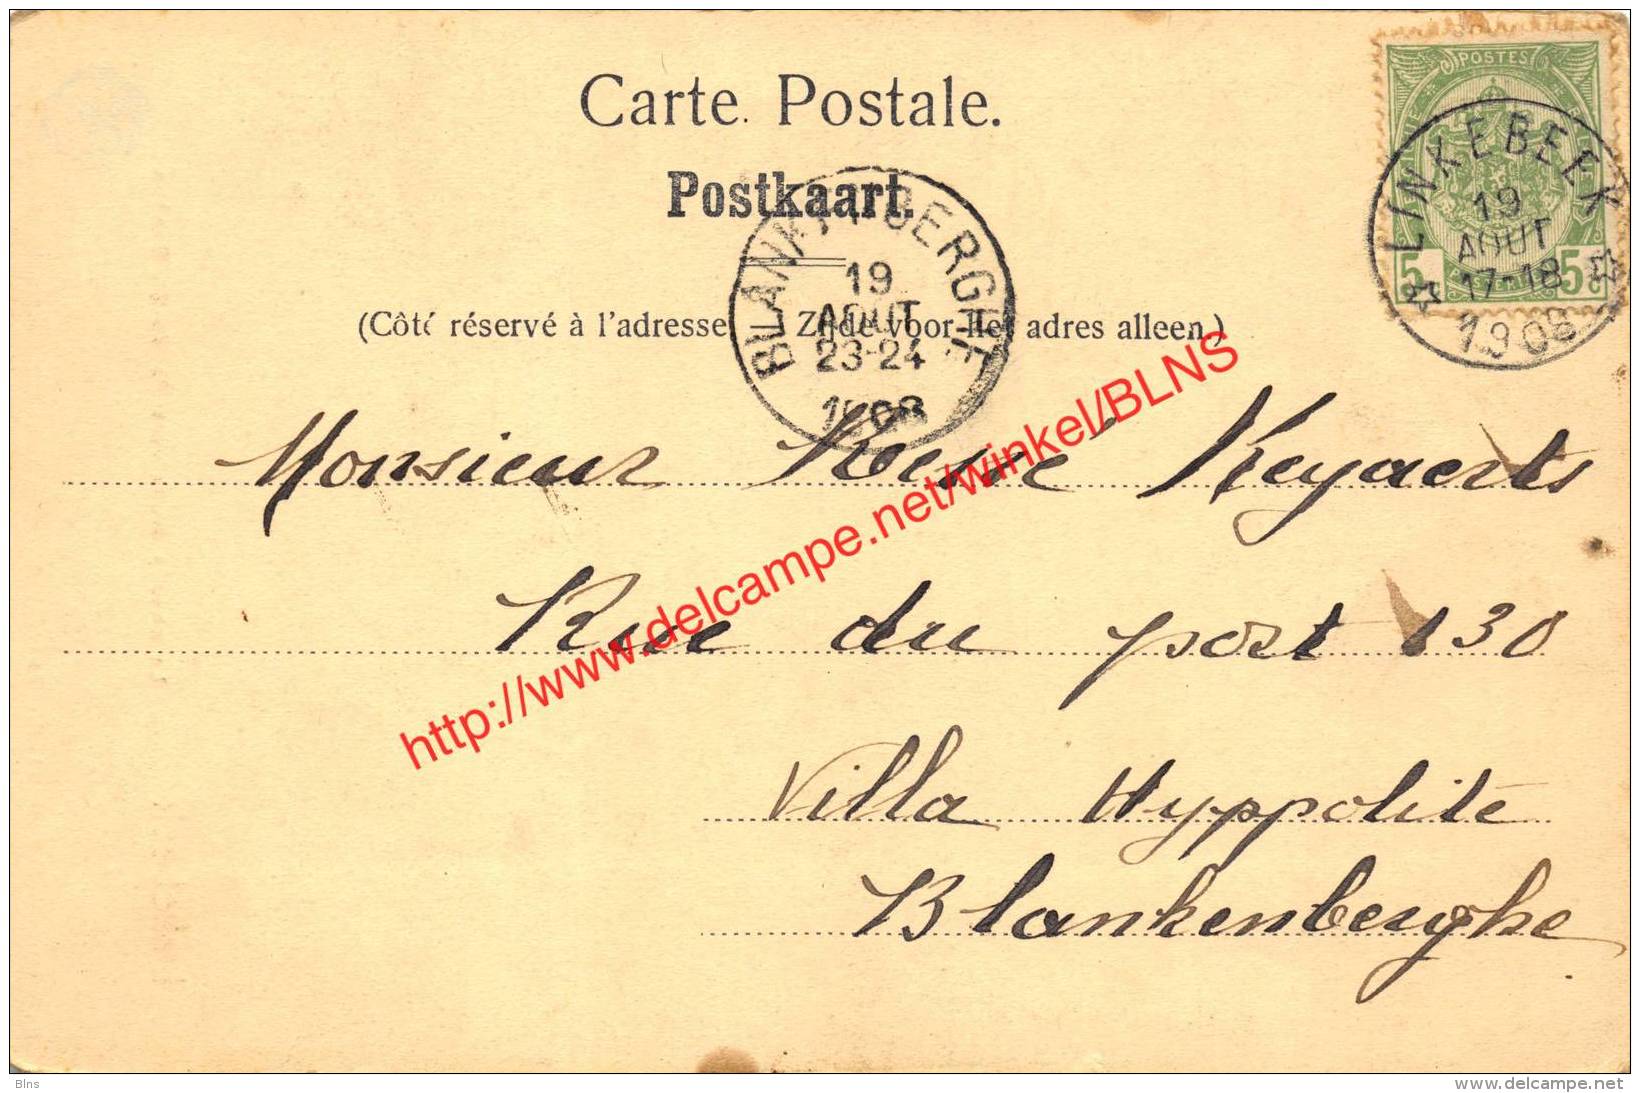 Carte Postale.
Postkaart.
(Côté réservé à l'adresse Zijde voor het adres alleen.)
POSTES
5 5
LINKEBEEK
19
AOUT
17-18
1908
BLANKENBERGHE
19
AOUT
23-24
1908
Monsieur Keyaerts
Rue du post 130
Villa Hyppolite
Blankenberghe
http://www.delcampe.net/winkel/BLNS
Blns
www.delcampe.net